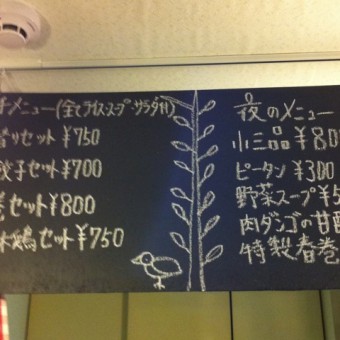 チメニュー(全てライス・スープ・サラダ付)
替りセット¥750
餃子セット¥700
巻セット¥800
セット¥750
夜のメニュー
小三品¥80
ピータン¥300
野菜スープ¥5
肉ダンゴの甘酢
特製春巻